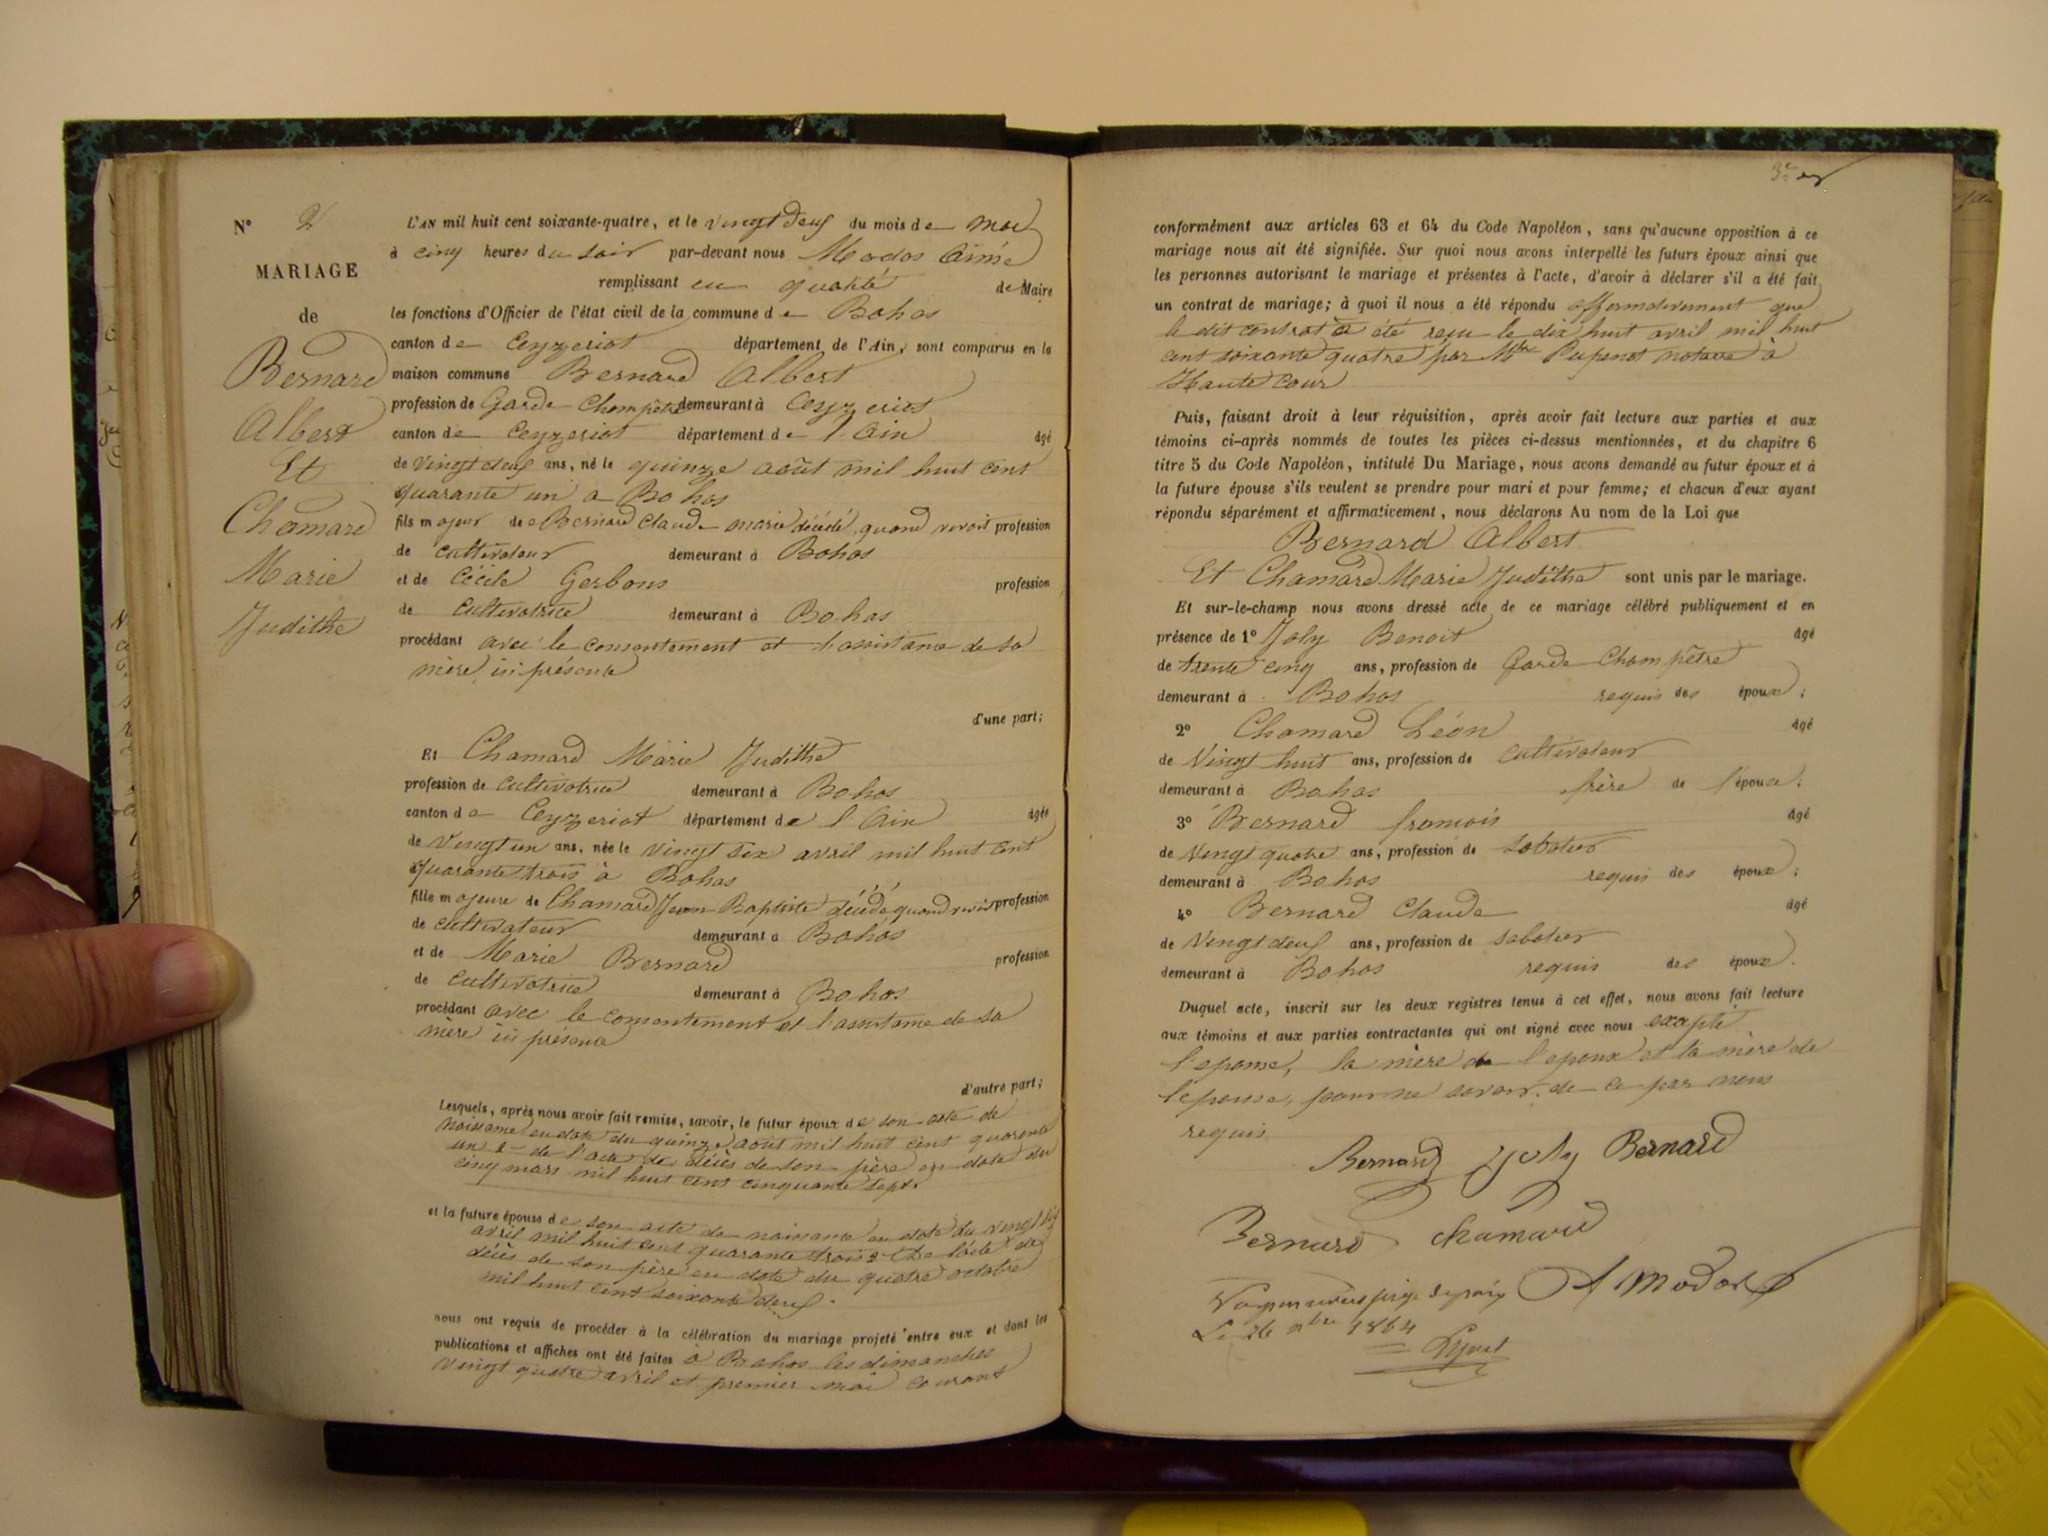 N° 2
MARIAGE
de
Bernard
Albert
Et
Chamard
Marie
Judithe
L'AN mil huit cent soixante-quatre, et le vingt deux du mois de mai
à cinq heures du soir par-devant nous Modas Aimé
remplissant en qualité de Maire
les fonctions d'Officier de l'état civil de la commune de Bohas
canton de Ceyzeriat département de l'Ain, sont comparus en la
maison commune Bernard Albert
profession de Garde Champêtre demeurant à Ceyzeriat
canton de Ceyzeriat département de l'Ain âgé
de vingt deux ans, né le quinze août mil huit cent
quarante un à Bohas
fils majeur de Bernard Claude marie décédé, quand vivoit profession
de cultivateur demeurant à Bohas
et de Cécile Gerbous profession
de cultivatrice demeurant à Bohas
procédant avec le consentement et l'assistance de sa
mère ici présente
d'une part;
Et Chamard Marie Judithe
profession de cultivatrice demeurant à Bohas
canton de Ceyzeriat département de l'Ain âgée
de vingt un ans, née le vingt six avril mil huit cent
quarante trois à Bohas
fille majeure de Chamard Jean Baptiste décédé quand vivoit profession
de cultivateur demeurant à Bohas
et de Marie Bernard profession
de cultivatrice demeurant à Bohas
procédant avec le consentement et l'assistance de sa
mère ici présence
d'autre part;
Lesquels, après nous avoir fait remise, savoir, le futur époux de son acte de
naissance en date du quinze août mil huit cent quarante
un 2° de l'acte de décès de son père en date du
cinq mars mil huit cent cinquante sept.
et la future épouse de son acte de naissance en date du vingt six
avril mil huit cent quarante trois 2° de l'acte de
décès de son père en date du quatre octobre
mil huit cent soixante deux.
nous ont requis de procéder à la célébration du mariage projeté entre eux et dont les
publications et affiches ont été faites à Bohas les dimanches
vingt quatre avril et premier mai courant
conformément aux articles 63 et 64 du Code Napoléon, sans qu'aucune opposition à ce
mariage nous ait été signifiée. Sur quoi nous avons interpellé les futurs époux ainsi que
les personnes autorisant le mariage et présentes à l'acte, d'avoir à déclarer s'il a été fait
un contrat de mariage; à quoi il nous a été répondu affirmativement que
le dit contrat a été reçu le dix huit avril mil huit
cent soixante quatre par Mtre Pupenot notaire à
Haute cour
Puis, faisant droit à leur réquisition, après avoir fait lecture aux parties et aux
témoins ci-après nommés de toutes les pièces ci-dessus mentionnées, et du chapitre 6
titre 5 du Code Napoléon, intitulé Du Mariage, nous avons demandé au futur époux et à
la future épouse s'ils veulent se prendre pour mari et pour femme; et chacun d'eux ayant
répondu séparément et affirmativement, nous déclarons Au nom de la Loi que
Bernard Albert
Et Chamard Marie Judithe sont unis par le mariage.
Et sur-le-champ nous avons dressé acte de ce mariage célébré publiquement et en
présence de 1° Joly Benoit âgé
de trente cinq ans, profession de Garde Champêtre
demeurant à Bohas requis des époux;
2° Chamard Léon âgé
de vingt huit ans, profession de cultivateur
demeurant à Bohas frère de l'épouse;
3° Bernard françois âgé
de vingt quatre ans, profession de sabotier
demeurant à Bohas requis des époux;
4° Bernard Claude âgé
de vingt deux ans, profession de sabotier
demeurant à Bohas requis des époux.
Duquel acte, inscrit sur les deux registres tenus à cet effet, nous avons fait lecture
aux témoins et aux parties contractantes qui ont signé avec nous excepté
l'epouse, la mère de l'epoux et la mère de
l'epouse, pour ne savoir. de ce par nous
requis
Bernard Joly Bernard
Bernard chamard
A Modas
Le 26 9bre 1864